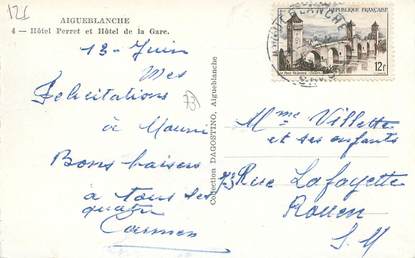 12f
AIGUEBLANCHE
4 — Hôtel Perret et Hôtel de la Gare.
13 - Juin
Mes
Félicitations
à
Bons baisers
à tous les
quatre
Carmen
Collection DAGOSTINO, Aigueblanche
RÉPUBLIQUE FRANÇAISE
12f
Mme Villette
et ses enfants
73 Rue Lafayette
Rouen
S. M